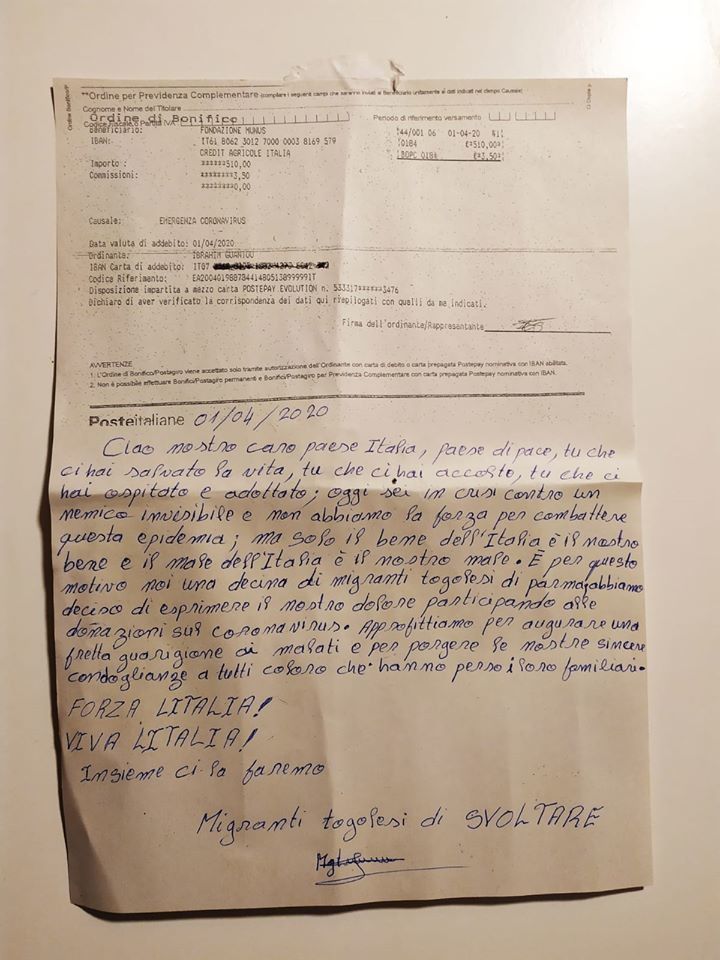 **Ordine per Previdenza Complementare (compilare i seguenti campi che saranno inviati al Beneficiario unitamente ai dati indicati nel campo Causale)
Cognome e Nome del Titolare
Ordine di Bonifico
Periodo di riferimento versamento
Codice fiscale o Partita IVA
Beneficiario: FONDAZIONE MUNUS
IBAN: IT61 8062 3012 7000 0003 8169 579
CREDIT AGRICOLE ITALIA
Importo : ******510,00
Commissioni: ********3,50
********0,00
44/001 06 01-04-20
0184 €*510,00*
BDPC 0184 €*3,50*
Causale: EMERGENZA CORONAVIRUS
Data valuta di addebito: 01/04/2020
Ordinante: IBRAHIM GUANIOU
IBAN Carta di addebito: IT07
Codice Riferimento:
Disposizione impartita a mezzo carta POSTEPAY EVOLUTION n. 533317******3476
Dichiaro di aver verificato la corrispondenza dei dati qui riepilogati con quelli da me indicati.
Firma dell'ordinante/Rappresentante
AVVERTENZE
1. L'Ordine di Bonifico/Postagiro viene accettato solo tramite autorizzazione dell'Ordinante con carta di debito o carta prepagata Postepay nominativa con IBAN abilitata.
2. Non è possibile effettuare Bonifici/Postagiro permanenti e Bonifici/Postagiro per Previdenza Complementare con carta prepagata Postepay nominativa con IBAN.
Posteitaliane 01/04/2020
Ciao nostro caro paese Italia, paese di pace, tu che
ci hai salvato la vita, tu che ci hai accolto, tu che ci
hai ospitato e adottato; oggi sei in crisi contro un
nemico invisibile e non abbiamo la forza per combattere
questa epidemia; ma solo il bene dell'Italia è il nostro
bene e il male dell'Italia è il nostro male. È per questo
motivo noi una decina di migranti togolesi di parma, abbiamo
deciso di esprimere il nostro dolore participando alle
donazioni sul coronavirus. Approfittiamo per augurare una
fretta guarigione ai malati e per porgere le nostre sincere
condoglianze a tutti coloro che hanno perso i loro familiari.
FORZA LITALIA!
VIVA LITALIA!
Insieme ci la faremo
Migranti togolesi di SVOLTARE